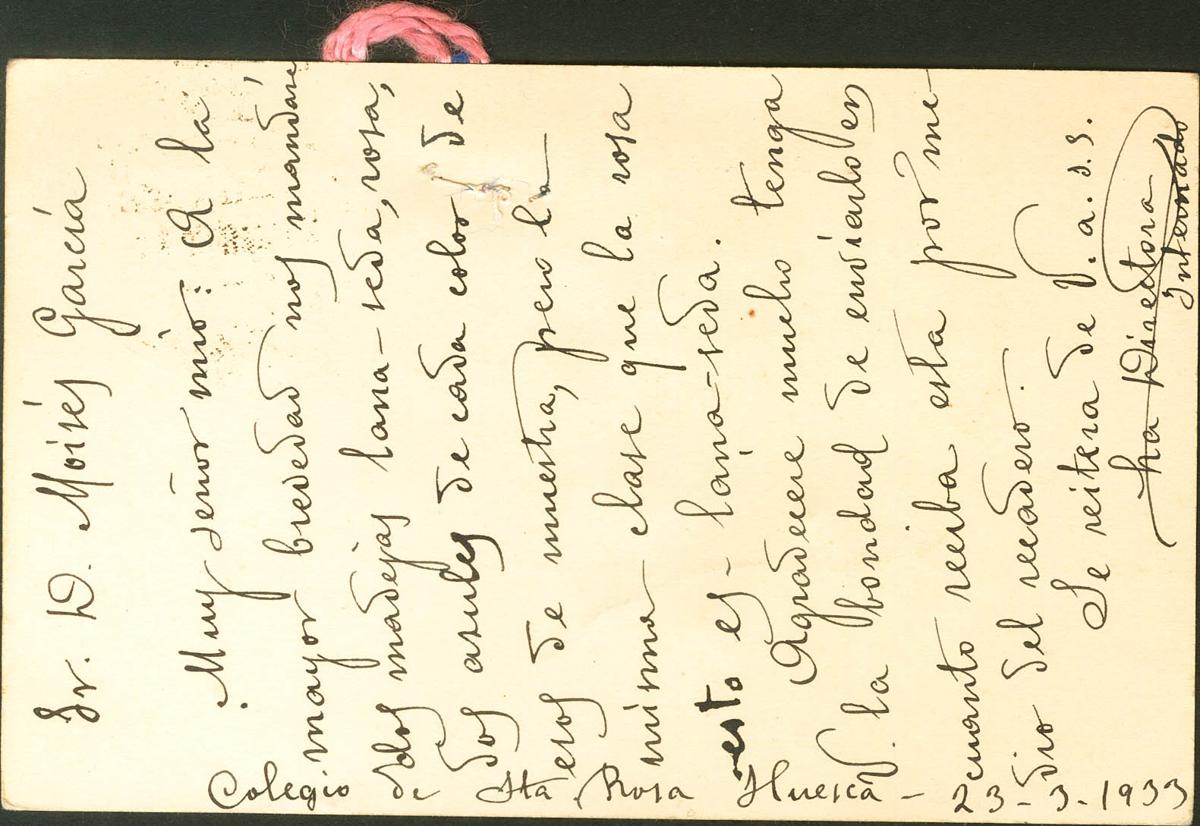 Sr. D. Moisés García
Muy señor mío: A la
mayor brevedad nos mandará
dos madejas lana-seda, rosa,
dos asules de cada color de
esos de muestra, pero la
misma clase que la rosa
esto es - lana-seda.
Agradeceré mucho tenga
V. la bondad de enviarlo en
cuanto reciba esta por me-
dio del recadero.
Se reitera de V. a. s.s.
La Directora
Internado
Colegio de Sta Rosa Huesca - 23-3-1933